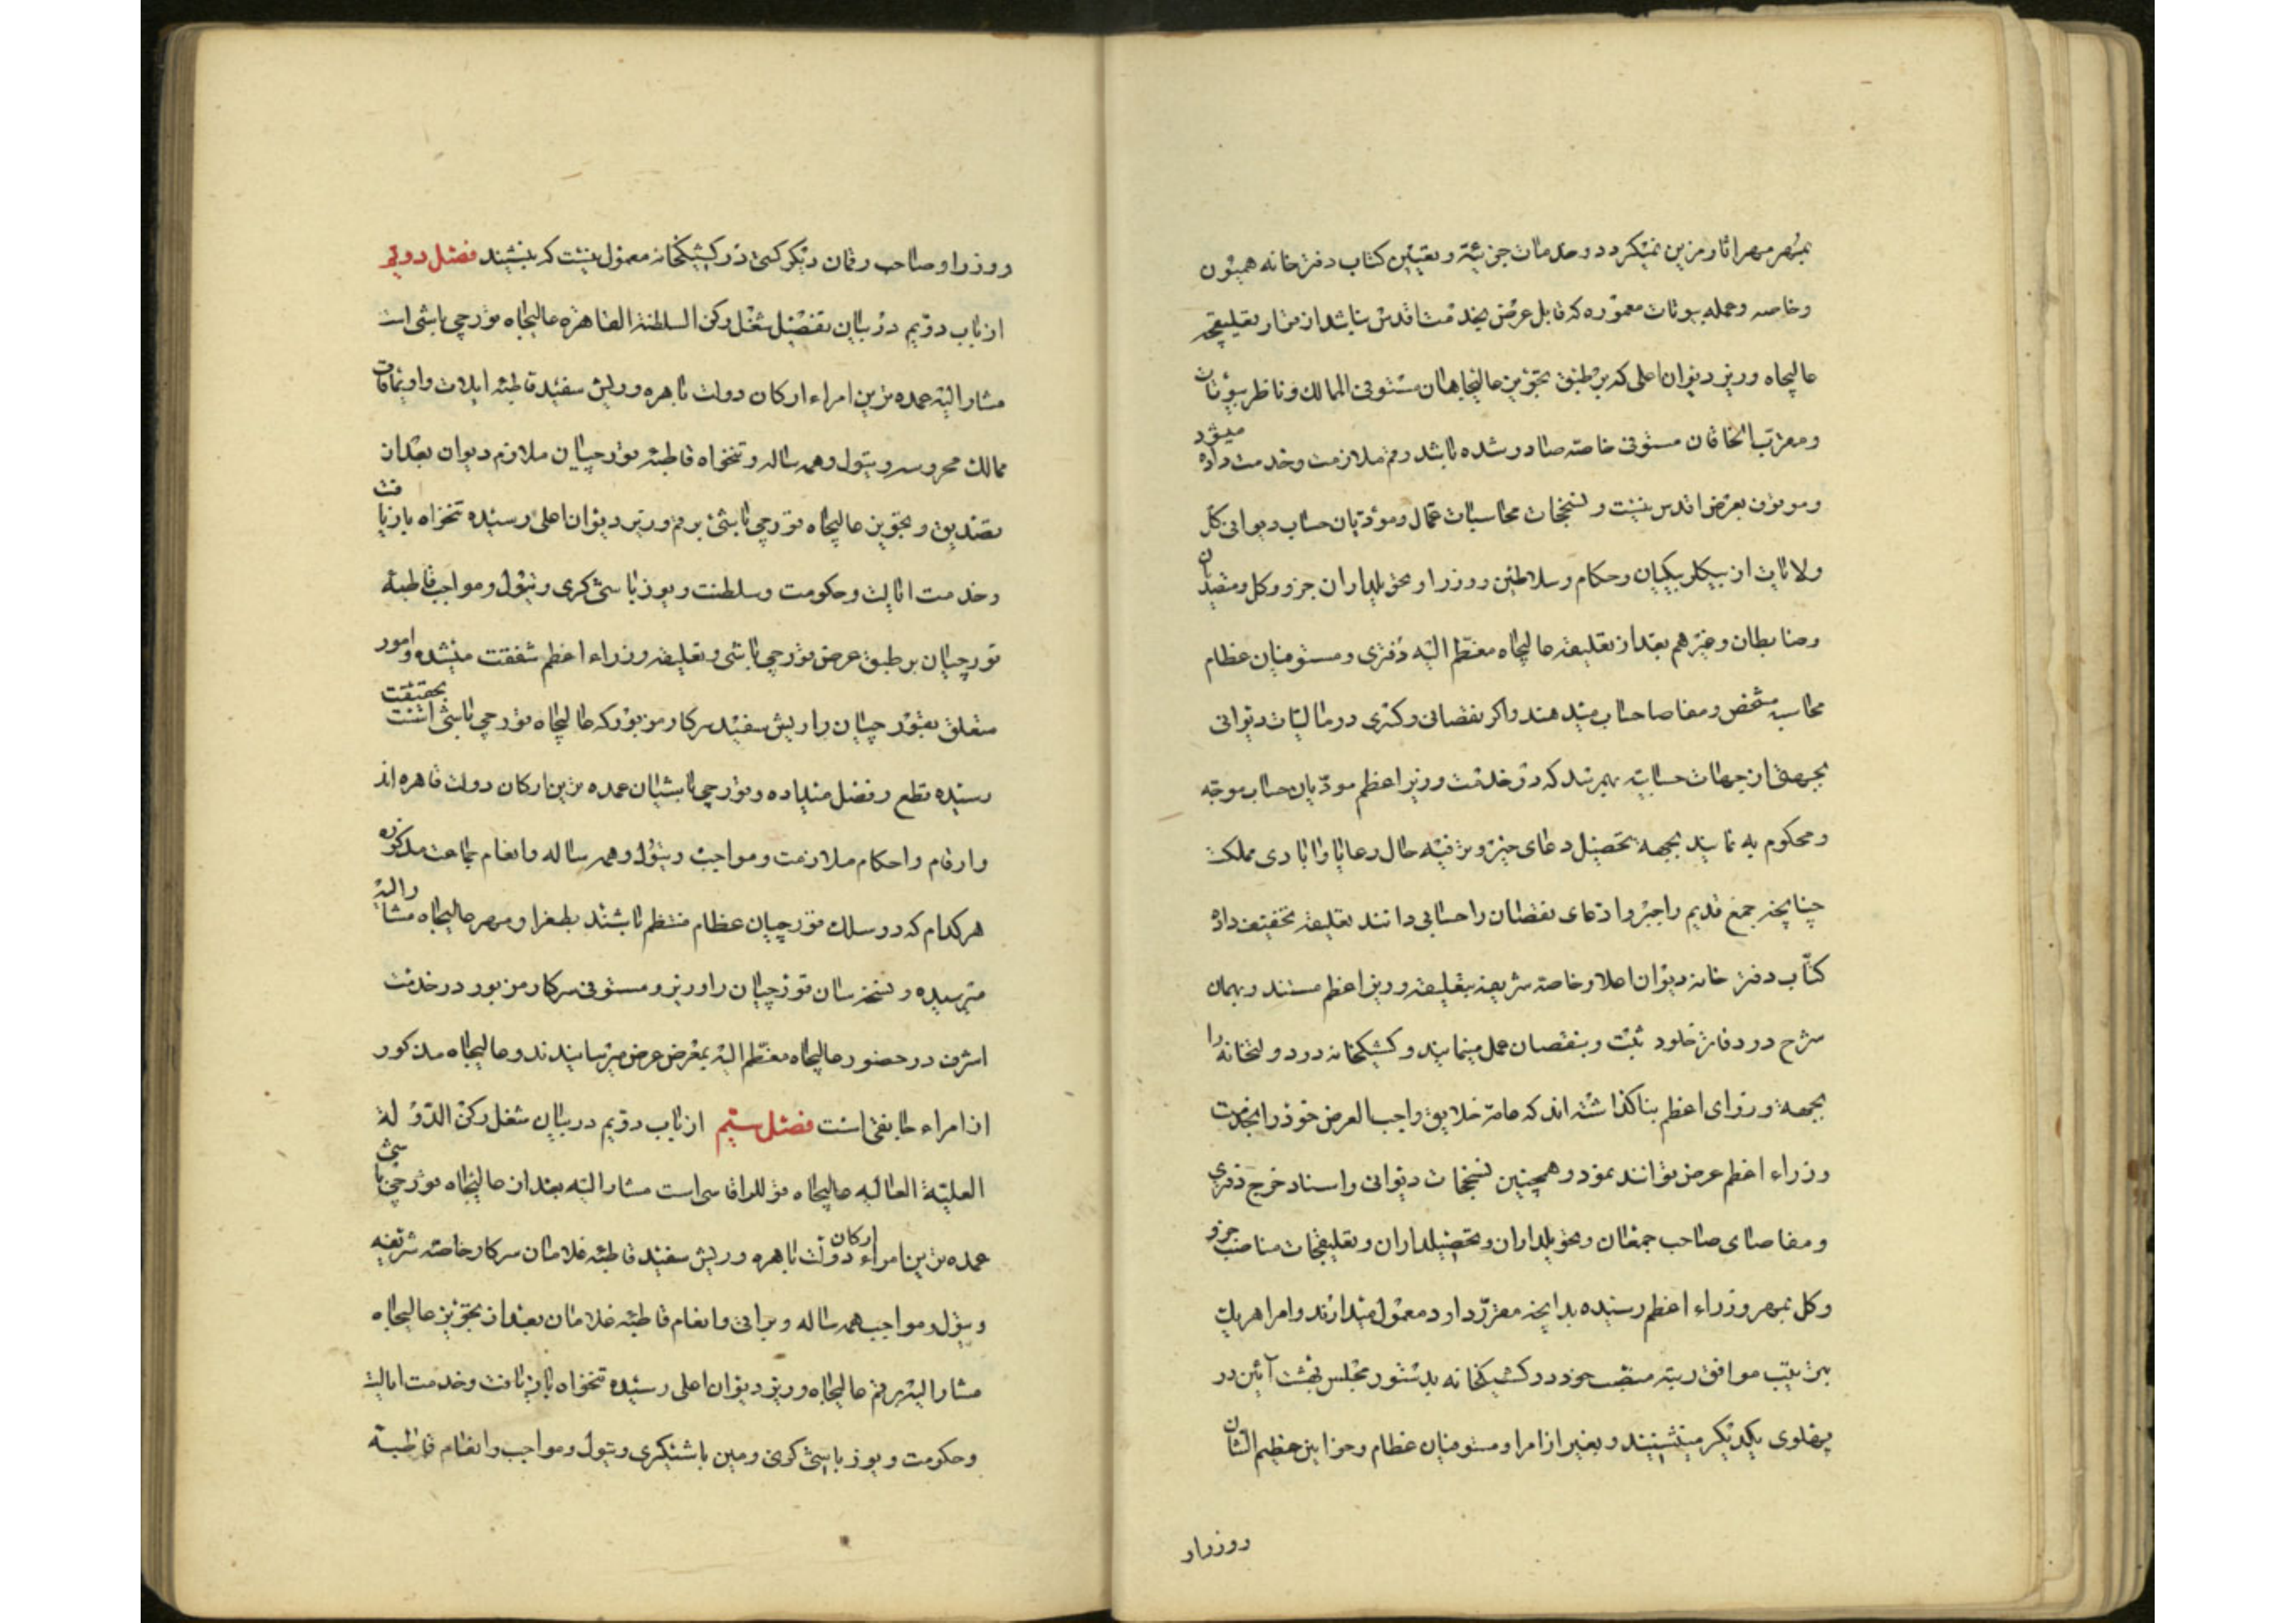 بمهر مهر آثار مزین نمیکردد و خدمات جزئیه و تعیین کتاب دفترخانه همیون
و خاصه و عمله بیوتات معموره که قابل عرض بخدمت اقدس نباشد از قرار تعلیقچه
عالیجاه وزیر دیوان اعلی که بر طبق تجویز عالیجاهان مستوفی الممالک و ناظر بیوتات
و مقرب الخاقان مستوفی خاصه صادر شده باشد رقم ملازمت و خدمت داده میشود
و موقوف بعرض اقدس نیست و نسخجات محاسبات عمال و مودیان حساب دیوانی کل
ولایات از بیکلربیکیان و حکام و سلاطین و وزرا و تحویلداران جزو و کل و متصدیان
و ضابطان و غیرهم بعد از تعلیقه عالیجاه معظم الیه دفتری و مستوفیان عظام
محاسبه مشخص و مفاصا حساب میدهند و اکر نقصانی و کسری در مالیات دیوانی
بجهتی از جهات حسابیه بهمرسد که در خدمت وزیر اعظم مودیان حساب موجه
و محکوم به نمایند بجهه تحصیل دعای خیر و ترفیه حال رعایا و ابادی مملکت
چنانچه جمع قدیم را جبر و ادعای نقصان را حسابی دانند تعلیقه تخفیف داده
کتّاب دفتر خانه دیوان اعلا و خاصه شریفه بتعلیقه وزیر اعظم مستند و بهمان
شرح در دفاتر خلود ثبت و بنقصان عمل مینمایند و کشیکخانه در دولتخانه را
بجهة وزرای اعظم بنا کذاشته اند که عامه خلایق واجب العرض خود را بخدمت
وزراء اعظم عرض توانند نمود و همچنین نسخجات دیوانی و اسناد خرج دفتری
و مفاصای صاحب جمعان و تحویلداران و تحصیلداران و تعلیقجات مناصب جزو
و کل بمهر وزراء اعظم رسیده بدانچه مقرر دارد معمول میدارند و امرا هریک
بترتیب موافق رتبه منصب خود در کشیکخانه بدستور مجلس بهشت آئین در
پهلوی یکدیکر مینشینند و بغیر از امرا و مستوفیان عظام و خوانین عظیم الشان
و وزرا و
و وزرا و صاحب رقمان دیکر کسی در کشیکخانه معمول نیست که بنشیند فصل دویم
از باب دویم در بیان تفصیل شغل رکن السلطنة القاهره عالیجاه قورچی باشی است
مشار الیه عمده ترین امراء ارکان دولت باهره و ریش سفید قاطبه ایلات و اویماقات
ممالک محروسه و تیول و همه ساله و تنخواه قاطبه قورچیان ملازم دیوان بعد از
تصدیق و تجویز عالیجاه قورچی باشی برقم وزیر دیوان اعلی رسیده تنخواه بازیافت
و خدمت ایالت و حکومت و سلطنت و یوزباشی کری و تیول و مواجب قاطبه
قورچیان بر طبق عرض قورچی باشی و تعلیقه وزراء اعظم شفقت میشده و امور
متعلق بقورچیان را ریش سفید سرکار مزبور که عالیجاه قورچی باشی است بحقیقت
رسیده قطع و فصل میداده و قورچی باشیان عمده ترین ارکان دولت قاهره اند
و ارقام و احکام ملازمت و مواجب و تیول و همه ساله و انعام جماعت مذکوره
هر کدام که در سلک قورچیان عظام منتظم باشند بطغرا و مهر عالیجاه مشار الیه
میرسیده و نسخه سان قورچیان را وزیر و مستوفی سرکار مزبور در خدمت
اشرف در حضور عالیجاه معظم الیه بمعرض عرض میرسانیدند و عالیجاه مذکور
از امراء جانقی است فصل سیّم از باب دویم در بیان شغل رکن الدّولة
العلیّة العالیه عالیجاه قوللر اقاسی است مشار الیه بعد از عالیجاه قورچی باشی
عمده ترین امراء ارکان دولت باهره و ریش سفید قاطبه غلامان سرکار خاصه شریفه
و تیول و مواجب همه ساله و براتی و انعام قاطبه غلامان بعد از تجویز عالیجاه
مشار الیه برقم عالیجاه وزیر دیوان اعلی رسیده تنخواه بازیافت و خدمت ایالت
و حکومت و یوزباشی کری و مین باشیکری و تیول و مواجب و انعام قاطبه